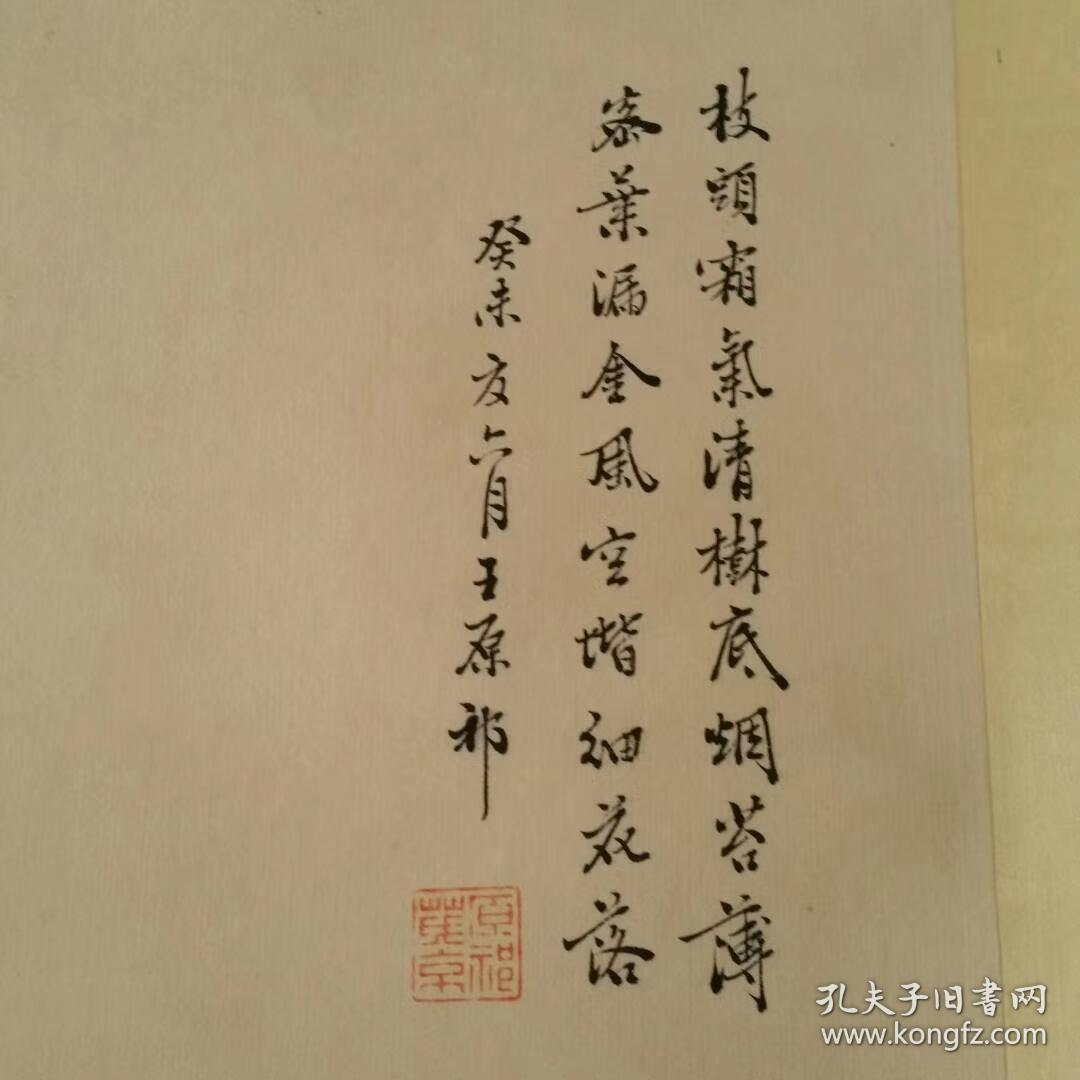 枝頭霜氣清樹底烟苔薄
密葉漏金風空堦細花落
癸未夏六月王原祁
原祁
孔夫子旧書网
www.kongfz.com